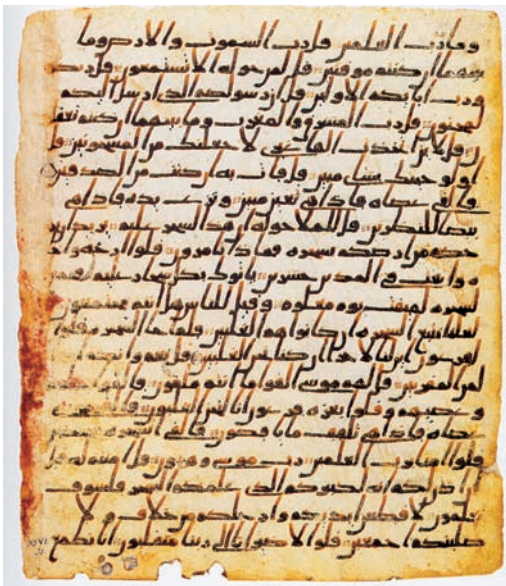 وما رب العلمين قل رب السموت والارض وما
بينهما ان كنتم موقنين قل لمن حوله الا تستمعون قل ربكم
ورب ابائكم الاولين قل ان رسولكم الذي ارسل اليكم
لمجنون قل رب المشرق والمغرب وما بينهما ان كنتم تعقلو
ن قل لئن اتخذت الها غيري لاجعلنك من المسجونين قل
اولو جئتك بشي مبين قل فات به ان كنت من الصدقين
فالقى عصاه فاذا هي ثعبن مبين ونزع يده فاذا هي
بيضا للنظرين قل للملا حوله ان هذا لسحر عليم يريد ان يخر
جكم من ارضكم بسحره فماذا تامرون قلوا ارجه واخا
ه وابعث في المدين حشرين ياتوك بكل سحار عليم فجمع
السحره لميقت يوم معلوم وقيل للناس هل انتم مجتمعون
لعلنا نتبع السحره ان كانوا هم الغلبين فلما جا السحره قلوا
لفرعون اين لنا لاجرا ان كنا نحن الغلبين قل نعم وانكم اذا
لمن المقربين قل لهم موسى القوا ما انتم ملقون فالقوا حبلهم
وعصيهم وقلوا بعزه فرعون انا لنحن الغلبون فالقى موسى
عصاه فاذا هي تلقف ما يافكون فالقي السحره سجدين
قلوا امنا برب العلمين رب موسى وهرون قل امنتم له قبل
ان اذن لكم انه لكبيركم الذي علمكم السحر فلسوف
تعلمون لاقطعن ايديكم وارجلكم من خلاف ولا
صلبنكم اجمعين قلوا لا ضير انا الى ربنا منقلبون انا نطمع